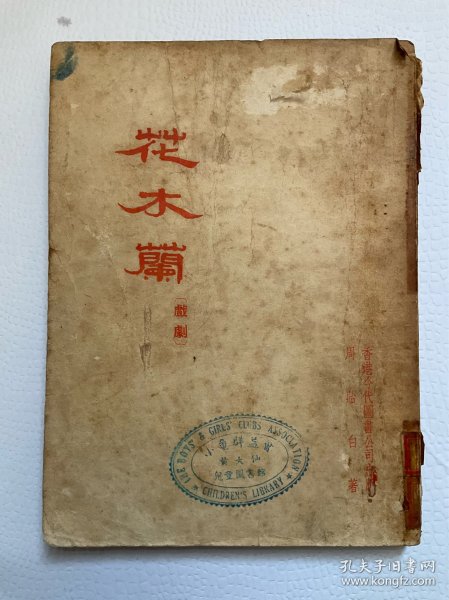 花木蘭
[戲劇]
香港今代圖書公司
周貽白 著
THE BOYS' & GIRLS' CLUBS ASSOCIATION
小童群益會
黃大仙
兒童圖書館
CHILDREN'S LIBRARY
孔夫子旧书网
www.kongfz.com